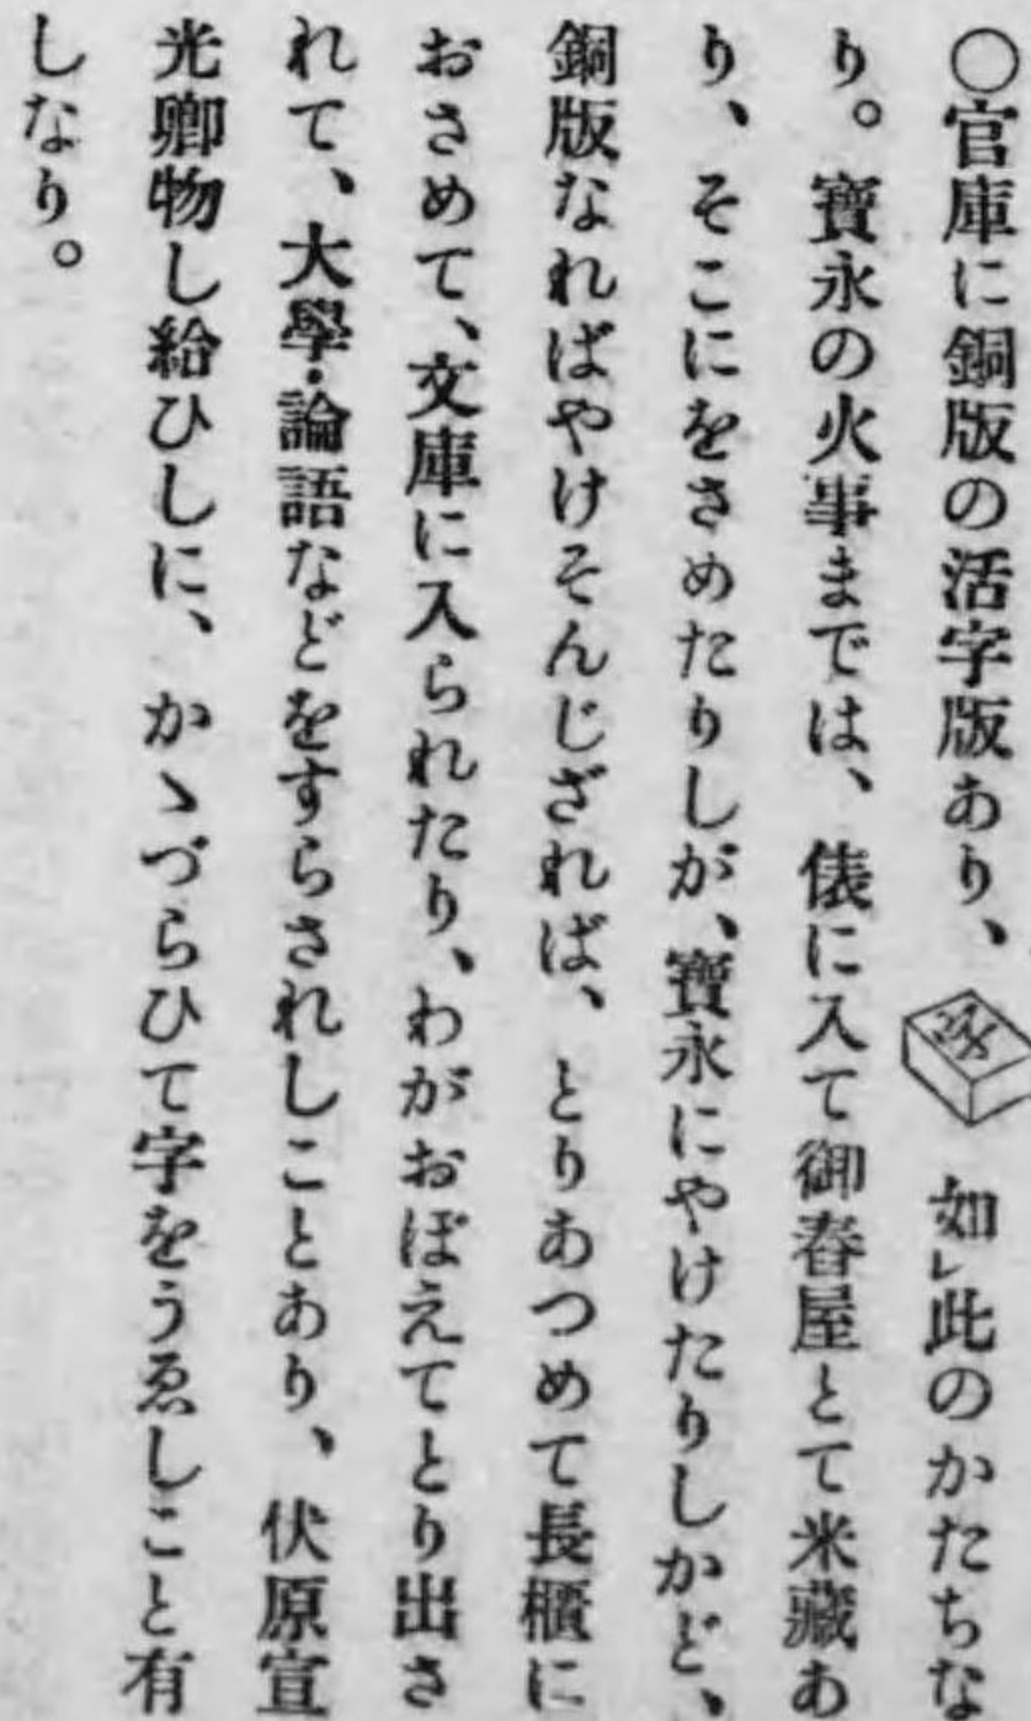 〇官庫に銅版の活字版あり、如レ此のかたちな
り。寶永の火事までは、俵に入て御舂屋とて米藏あ
り、そこにをさめたりしが、寶永にやけたりしかど、
銅版なればやけそんじざれば、とりあつめて長櫃に
おさめて、文庫に入られたり、わがおぼえてとり出さ
れて、大學・論語などをすらされしことあり、伏原宣
光卿物し給ひしに、かゝづらひて字をうゑしこと有
しなり。